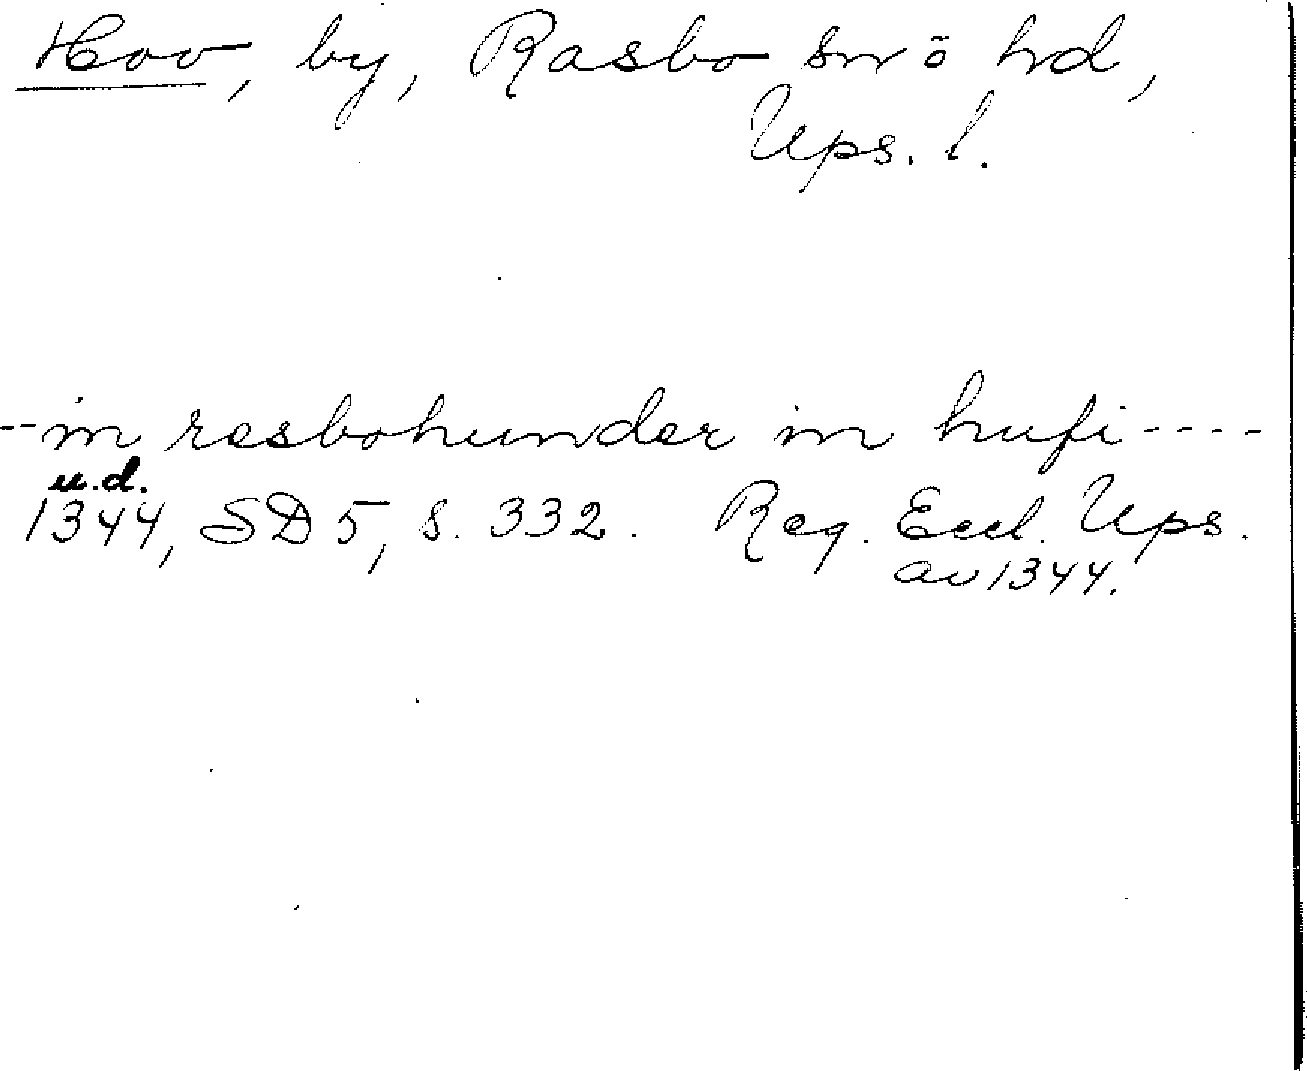 Hov, by, Rasbo sn o hd,
Ups. l.
--in rasbohundar in hufi----
u.d.
1344, SD 5, s. 332. Reg. Eccl. Ups.
av 1344.